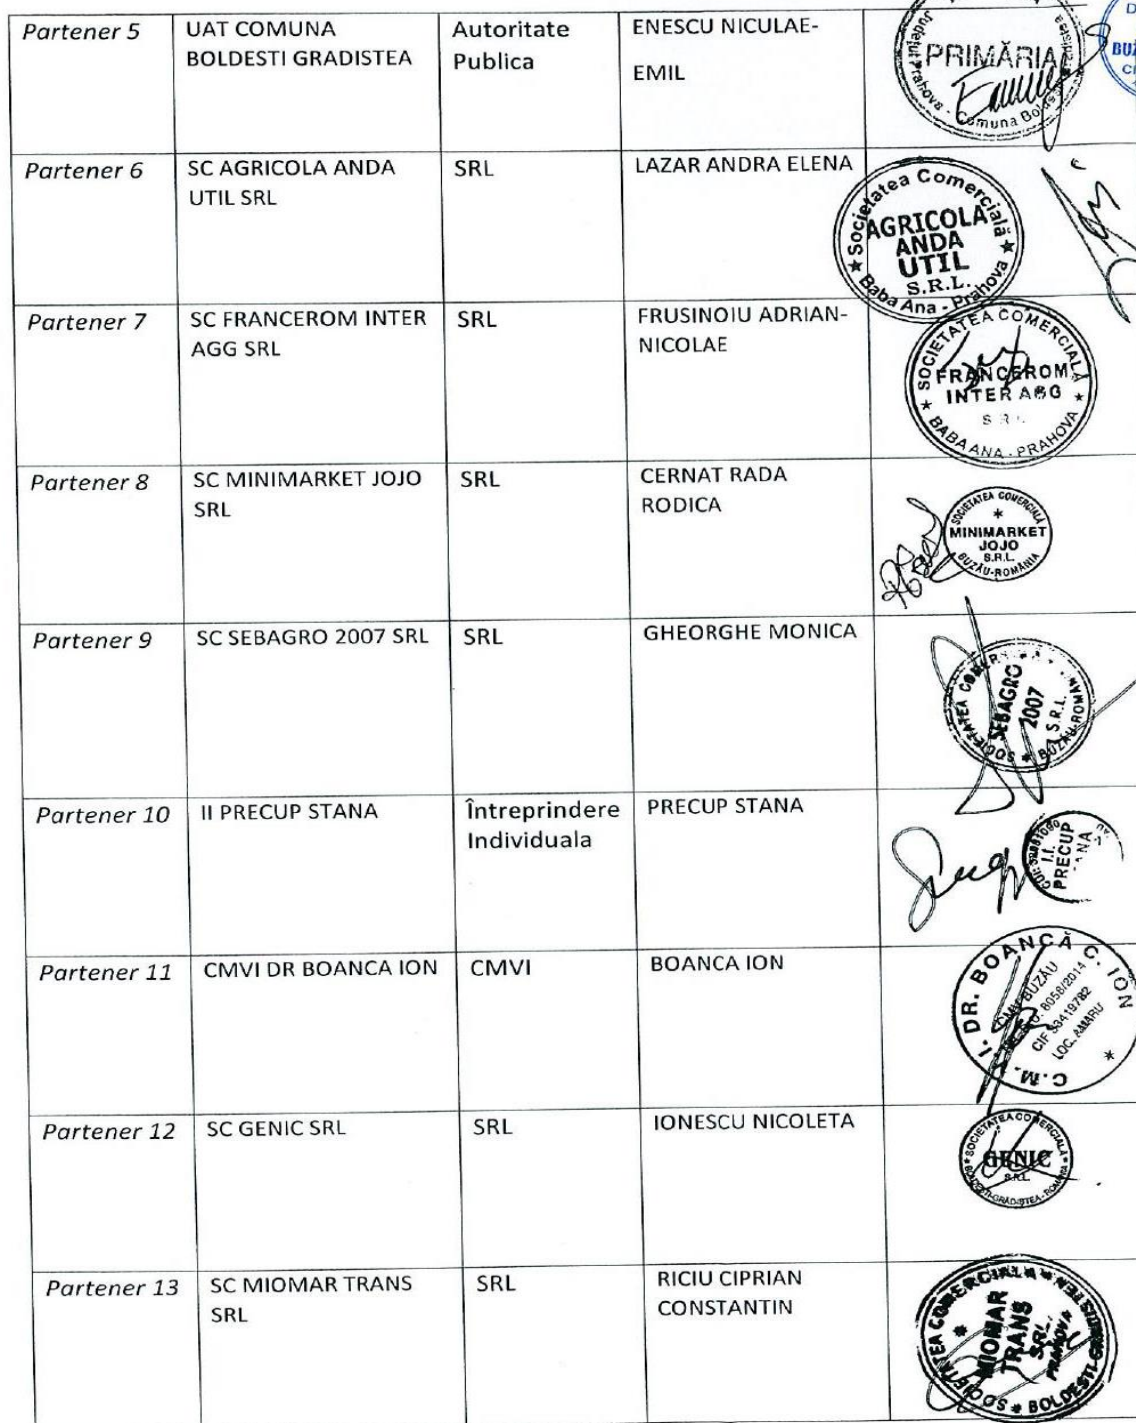 Partener 5
UAT COMUNA
BOLDESTI GRADISTEA
Autoritate
Publica
ENESCU NICULAE-
EMIL
PRIMĂRIA
Județul Prahova - Comuna
Partener 6
SC AGRICOLA ANDA
UTIL SRL
SRL
LAZAR ANDRA ELENA
Societatea Comercială
AGRICOLA
ANDA
UTIL
S.R.L.
Baba Ana - Prahova
Partener 7
SC FRANCEROM INTER
AGG SRL
SRL
FRUSINOIU ADRIAN-
NICOLAE
SOCIETATEA COMERCIALĂ
FRANCEROM
INTER AGG
S.R.L.
BABA ANA - PRAHOVA
Partener 8
SC MINIMARKET JOJO
SRL
SRL
CERNAT RADA
RODICA
SOCIETATEA COMERCIALĂ
MINIMARKET
JOJO
S.R.L.
BUZĂU-ROMÂNIA
Partener 9
SC SEBAGRO 2007 SRL
SRL
GHEORGHE MONICA
SOCIETATEA
SEBAGRO
2007
S.R.L.
Partener 10
II PRECUP STANA
Întreprindere
Individuala
PRECUP STANA
I.I.
PRECUP
Partener 11
CMVI DR BOANCA ION
CMVI
BOANCA ION
I. DR. BOANCĂ C. ION
BUZĂU
8058/2014
CIF 33419782
LOC. AMARU
Partener 12
SC GENIC SRL
SRL
IONESCU NICOLETA
SOCIETATEA COMERCIALA
GENIC
SRL
BOLDESTI-GRĂDIȘTEA-ROMÂNIA
Partener 13
SC MIOMAR TRANS
SRL
SRL
RICIU CIPRIAN
CONSTANTIN
SOCIETATEA COMERCIALA
MIOMAR
TRANS
SRL
PRAHOVA